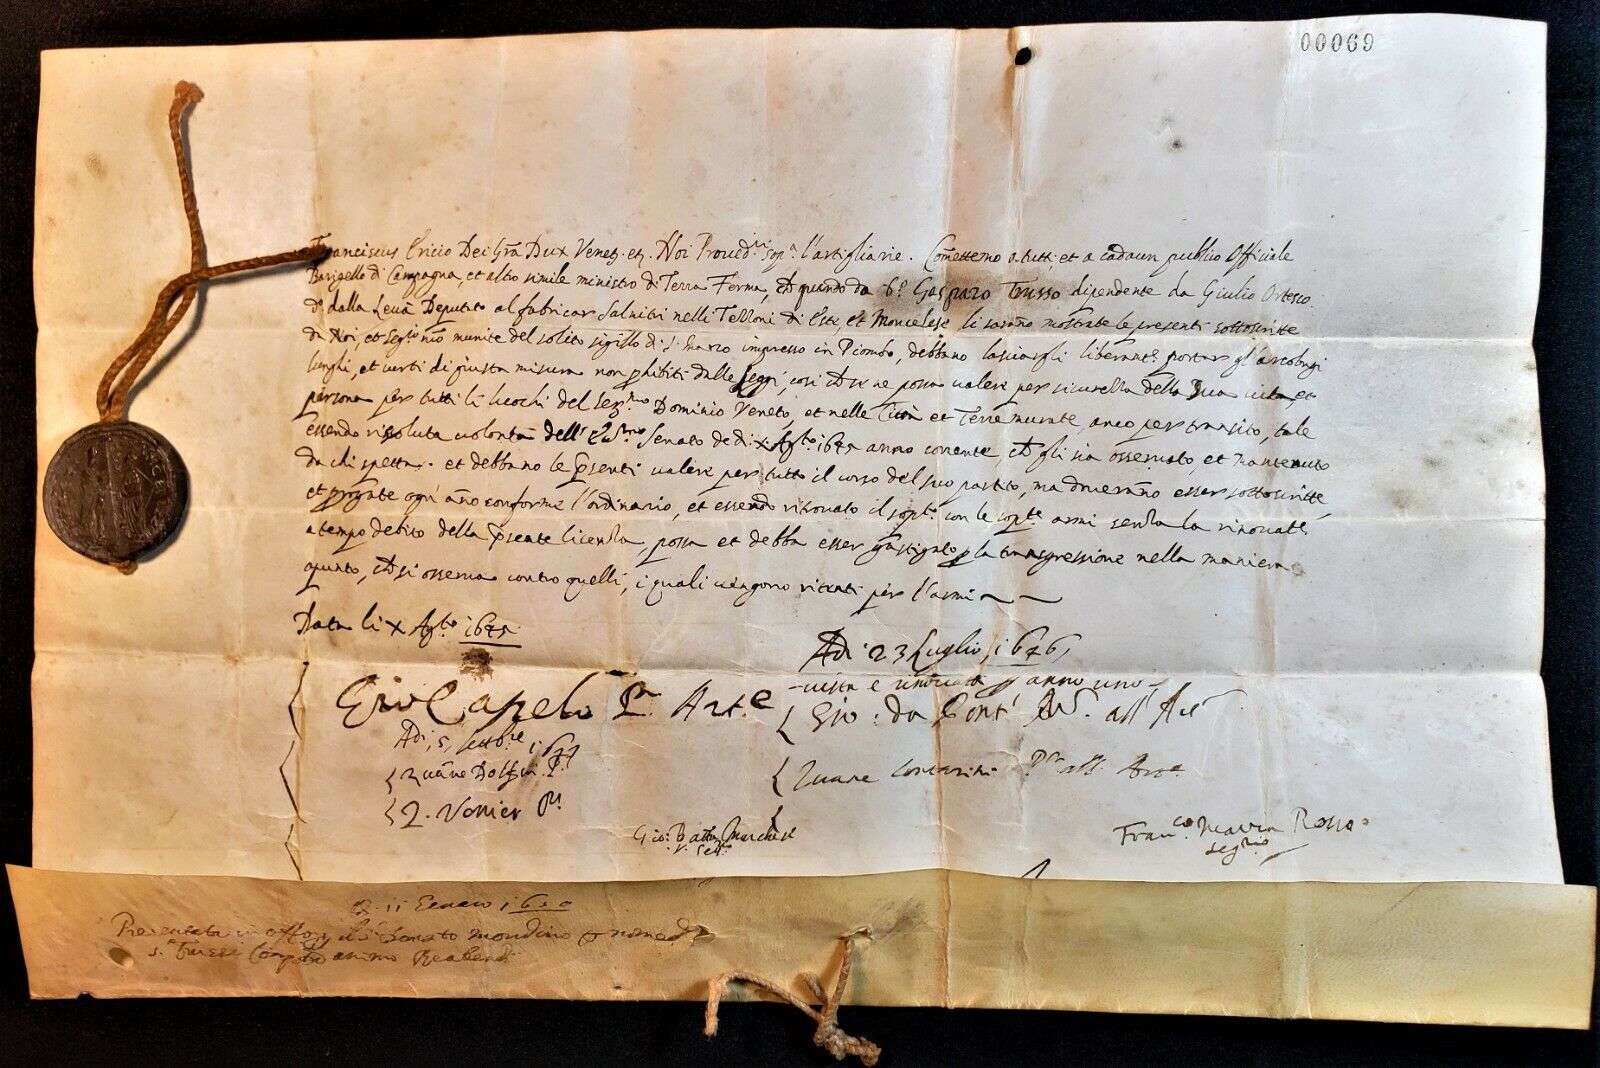 00069
Franciscus Ericio Dei Grã Dux Venet. et. Noi Proved.ri sop.a l'artigliarie. Comettemo a tutti, et a cadaun publico Officiale
Barigello di Campagna, et altro simile ministro di Terra Ferma, ch quando da Gasparo Trusso dipendente da Giulio Ortesco
dalla Leuà Deputato al fabricar Salnitri nelli Terreni di Este et Moncelese li sarano mostrate le presenti sottoscritte
da Noi, et Seg.rio nro munite del solito sigillo di S. Marco impresso in Piombo, debbano lasciargli liberam.te portar gl'arcobugi
longhi, et curti di giusta misura non phibiti dalle Leggi, cosi ch se ne possa valere per sicurezza della Sua vita, et
persona per tutti li luochi del Ser.mo Dominio Veneto, et nelle Città et Terre murate, anco per transito, tale
essendo risoluta volontà dell' Senato de di x Ag.to 1645 anno corrente, ch gli sia osservato, et mantenuto
da chi spetta. et debbano le pñsenti valere per tutto il corso del suo partito, ma doverano esser sottoscritte,
et ogni año conforme l'ordinario, et essendo ritrovato il sop.to con le sop.te armi senza la rinovat.e
a tempo debito della pñsente licenza, possa et debba esser gastigato p la transgressione nella maniera
apunto, ch si osserva contro quelli, i quali vengono ritenti per l'armi
Data li x Ag.to 1645
Adi 23 Luglio, 1646,
vista e rinovata p anno uno
Gio Capelo Pr. Art.e
Gio: da all' Art
Adi, 5, settbre, 1647
Zuãne Dolfin Pr
Zuane Contarini Pr all. Arte
Z. Venier Pr
Gio: Batta Marchesi
Seg.
Fran.co Maria Rosso
Segrio
11 Genaro
Presentata in Donato mondino p nome di
s.r Trusso animo